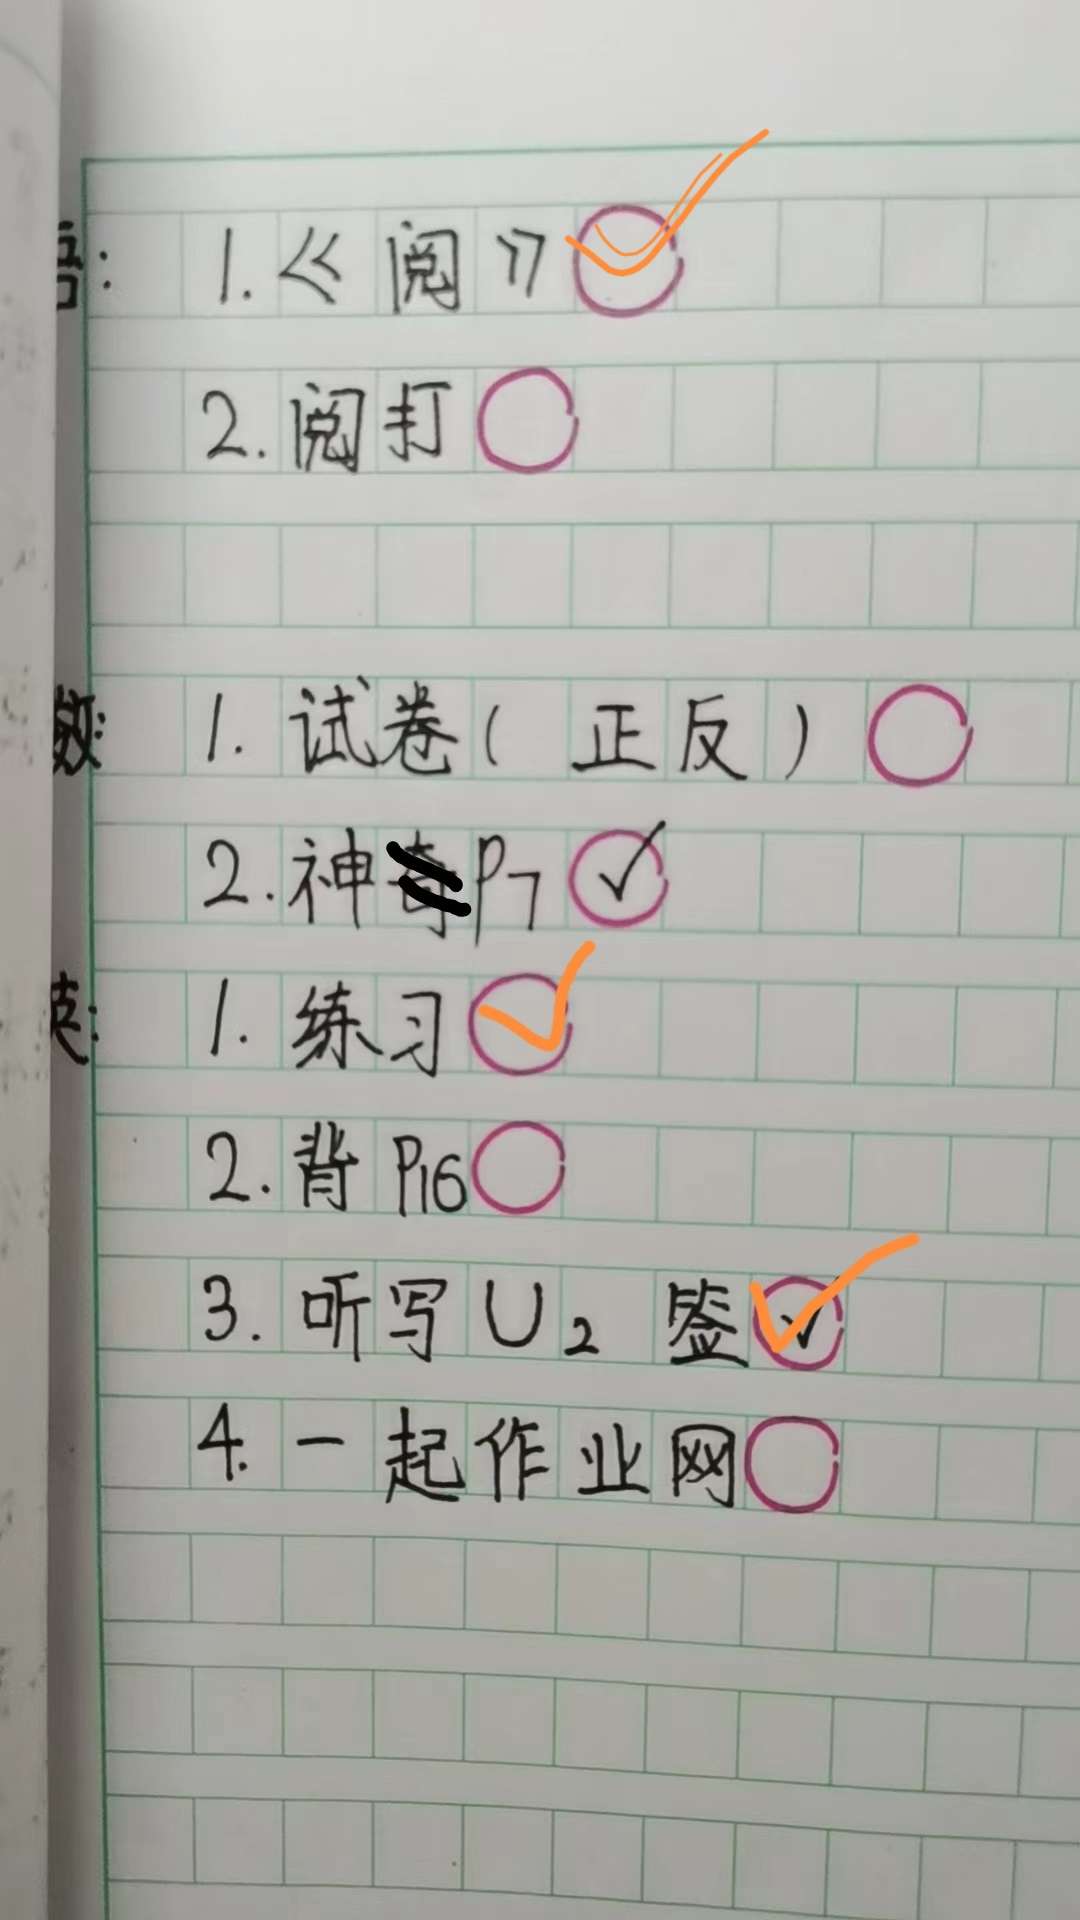 语: 1.《阅》
2.阅打
数: 1.试卷(正反)
2.神P7
英: 1.练习
2.背P16
3.听写U2 签
4.一起作业网